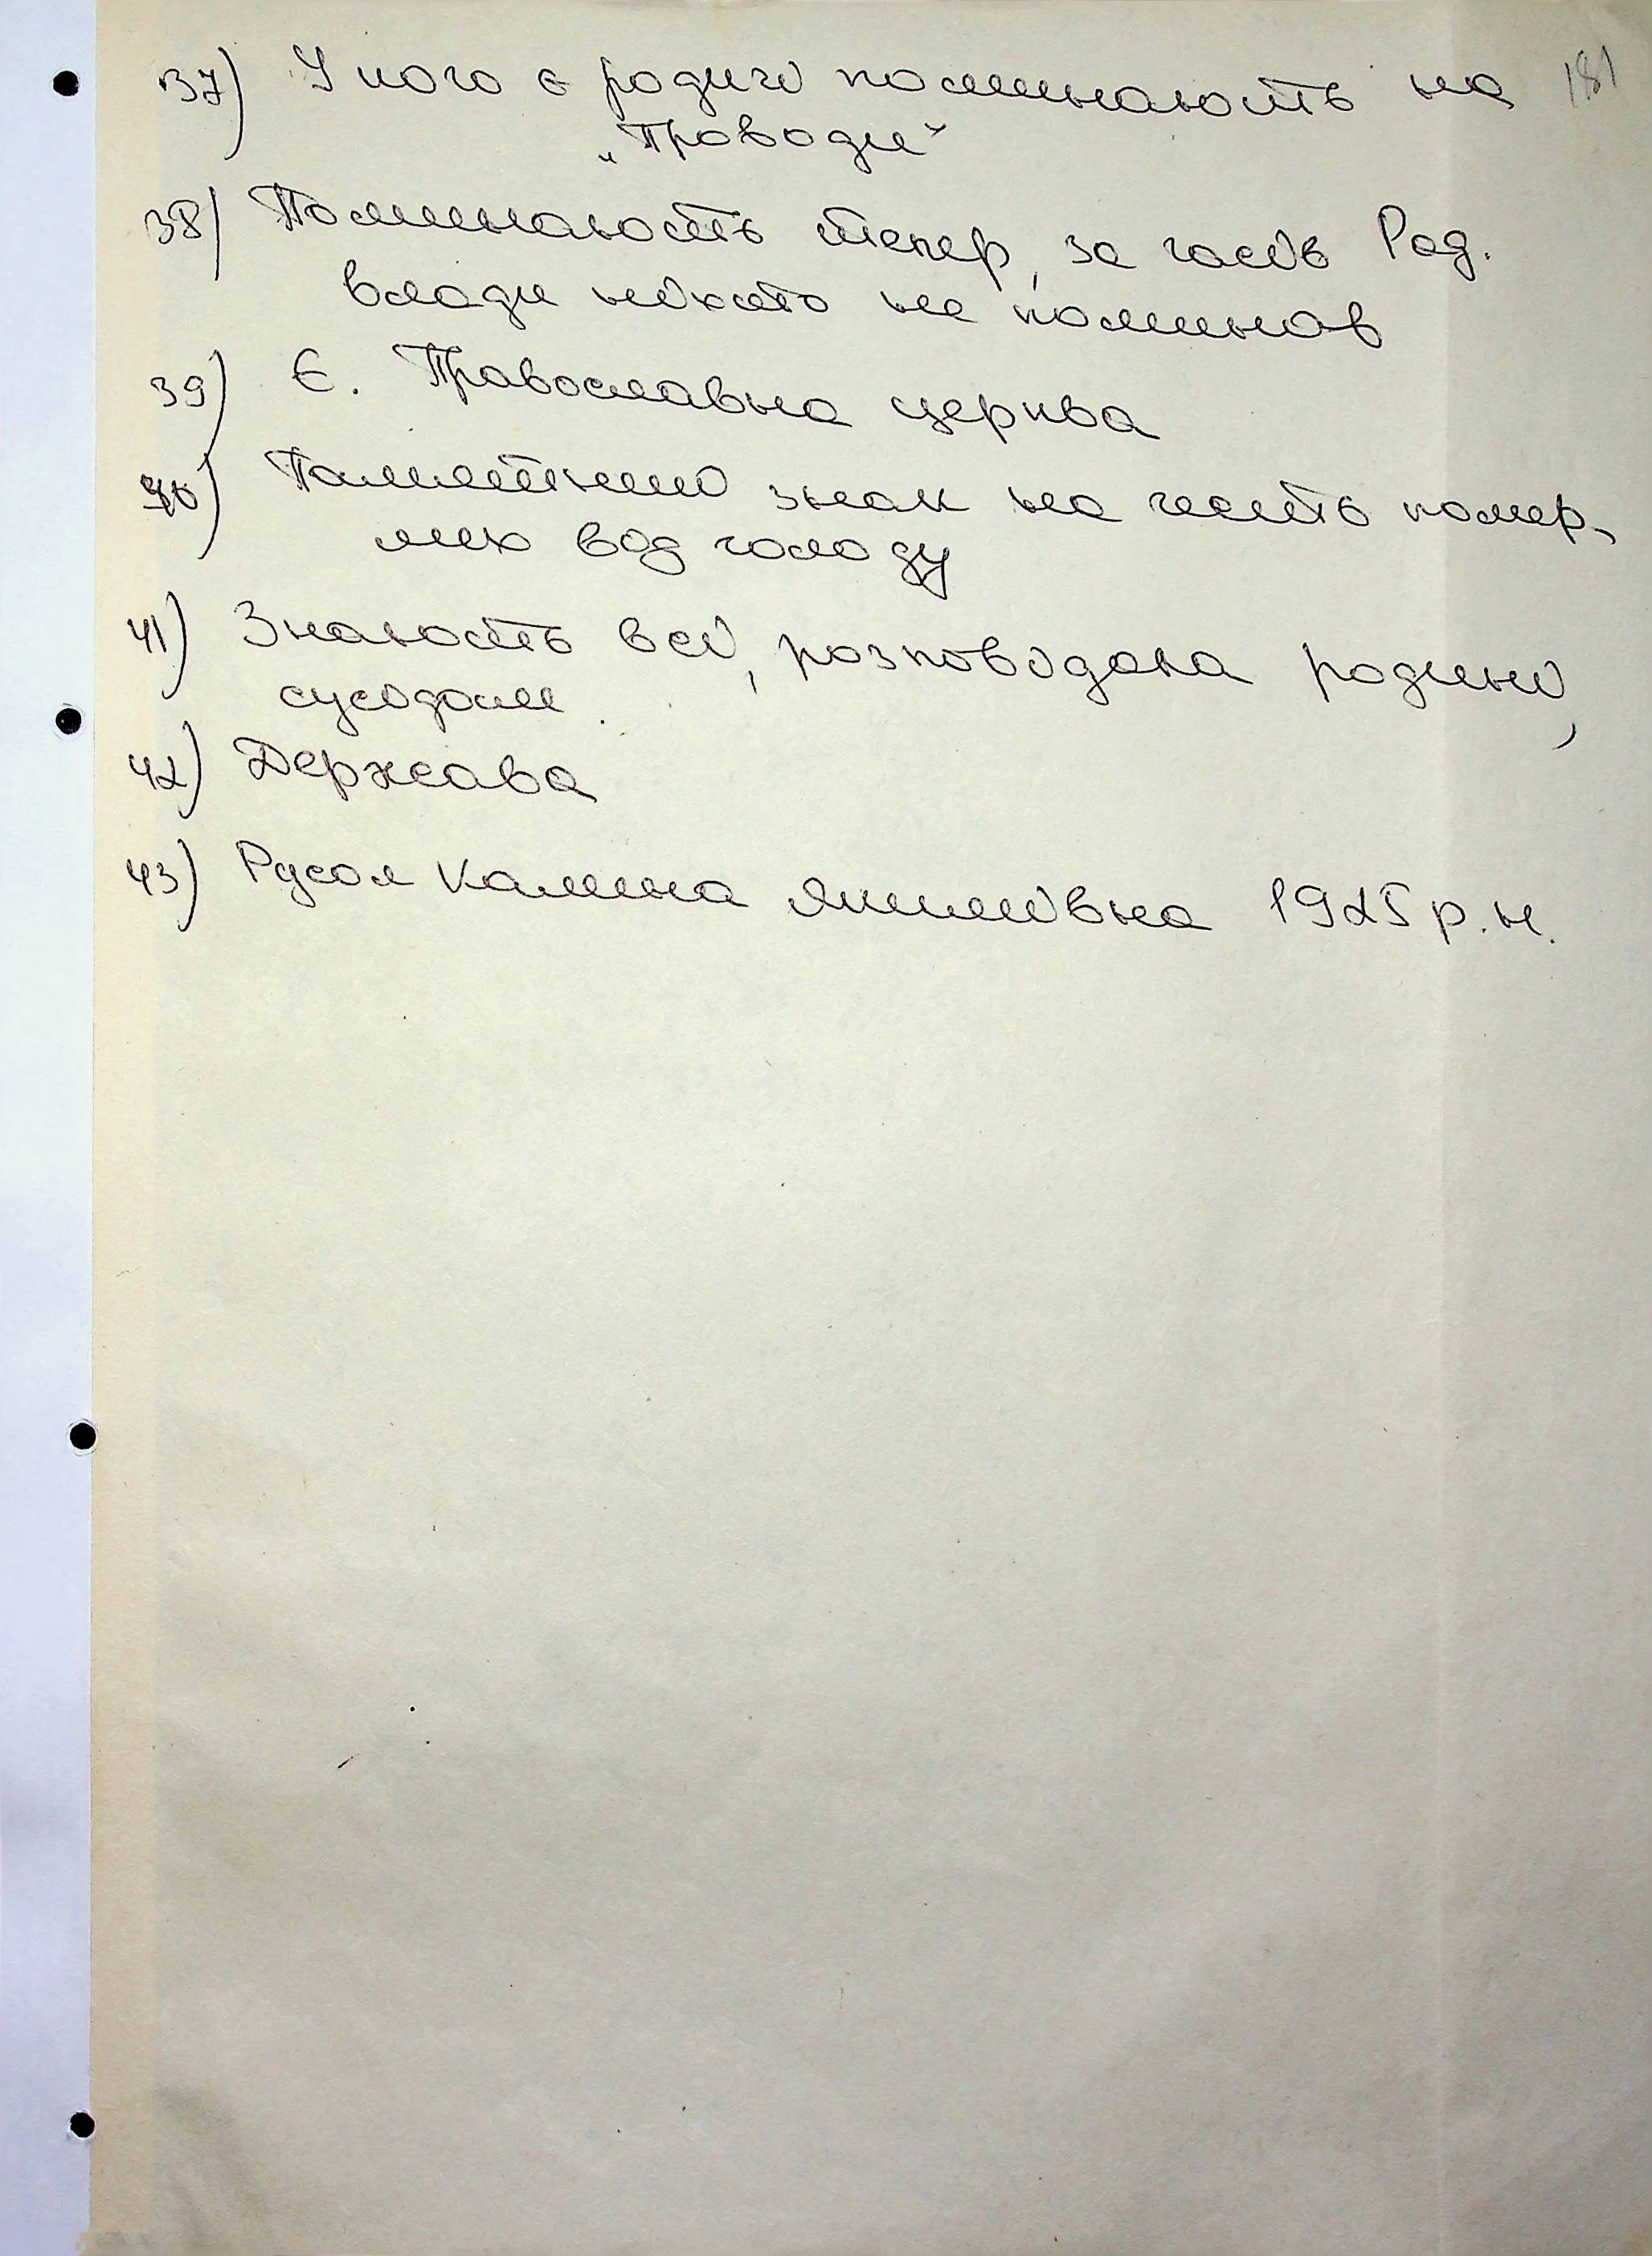 181
37) У кого є родичі поминають на
„Проводи"
38) Поминають тепер, за часів Рад.
влади ніхто не поминав
39) Є. Православна церква
40) Памятний знак на честь помер-
лих від голоду
41) Знають всі, розповідала родині,
сусідам.
42) Держава
43) Русол Калина Якимівна 1925 р.н.